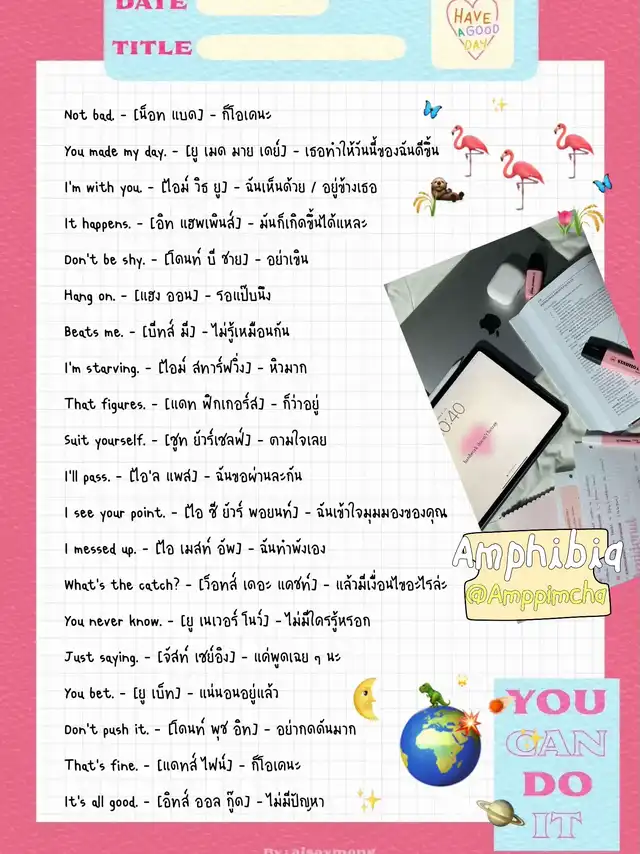 DATE
TITLE
HAVE
A GOOD
DAY
Not bad. - [น็อท แบด] - ก็โอเคนะ
You made my day. - [ยู เมด มาย เดย์] - เธอทำให้วันนี้ของฉันดีขึ้น
I'm with you. - [ไอม์ วิธ ยู] - ฉันเห็นด้วย / อยู่ข้างเธอ
It happens. - [อิท แฮพเพินส์] - มันก็เกิดขึ้นได้แหละ
Don't be shy. - [โดนท์ บี ชาย] - อย่าเขิน
Hang on. - [แฮง ออน] - รอแป๊บนึง
Beats me. - [บีทส์ มี] - ไม่รู้เหมือนกัน
I'm starving. - [ไอม์ สทาร์ฟวิ่ง] - หิวมาก
That figures. - [แดท ฟิกเกอร์ส] - ก็ว่าอยู่
Suit yourself. - [ซูท ยัวร์เซลฟ์] - ตามใจเลย
I'll pass. - [ไอ'ล แพส] - ฉันขอผ่านละกัน
I see your point. - [ไอ ซี ยัวร์ พอยนท์] - ฉันเข้าใจมุมมองของคุณ
I messed up. - [ไอ เมสท์ อัพ] - ฉันทำพังเอง
What's the catch? - [ว็อทส์ เดอะ แคชท์] - แล้วมีเงื่อนไขอะไรล่ะ
You never know. - [ยู เนเวอร์ โนว์] - ไม่มีใครรู้หรอก
Just saying. - [จัสท์ เซย์อิง] - แค่พูดเฉย ๆ นะ
You bet. - [ยู เบ็ท] - แน่นอนอยู่แล้ว
Don't push it. - [โดนท์ พุช อิท] - อย่ากดดันมาก
That's fine. - [แดทส์ ไฟน์] - ก็โอเคนะ
It's all good. - [อิทส์ ออล กู๊ด] - ไม่มีปัญหา
Amphibia
@Amppimcha
YOU
CAN
DO
IT